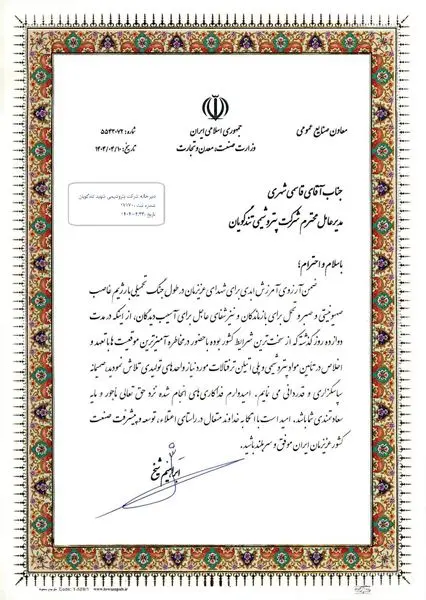 معاون صنایع عمومی
جمهوری اسلامی ایران
وزارت صنعت، معدن و تجارت
شماره: ۵۵۲۲۰۷۲
تاریخ: ۱۴۰۴/۰۴/۱۰
دبیرخانه شرکت پتروشیمی شهید تندگویان
شماره ثبت:
تاریخ:
جناب آقای قاسمی شهری
مدیر عامل محترم شرکت پتروشیمی تندگویان
باسلام و احترام؛
ضمن آرزوی آمرزش ابدی برای شهدای عزیزمان در طول جنگ تحمیلی با رژیم غاصب
صهیونیستی و صبر و تحمل برای بازماندگان و نیز شفای عاجل برای آسیب دیدگان، از اینکه در مدت
دوازده روز گذشته که از سخت‌ترین شرایط کشور بوده با حضور در مخاطره آمیزترین موقعیت با تعهد و
اخلاص در تامین مواد پتروشیمی و پلی اتیلن ترفتالات مورد نیاز واحدهای تولیدی تلاش نمودید، صمیمانه
سپاسگزاری و قدردانی می نمایم. امیدوارم فداکاری های انجام شده نزد حق تعالی مأجور و مایه
سعادتمندی شما باشد. امید است با اتکا به خداوند متعال در راستای اعتلاء، توسعه و پیشرفت صنعت
کشور عزیزمان ایران موفق و سربلند باشید.
ابراهیم شیخ